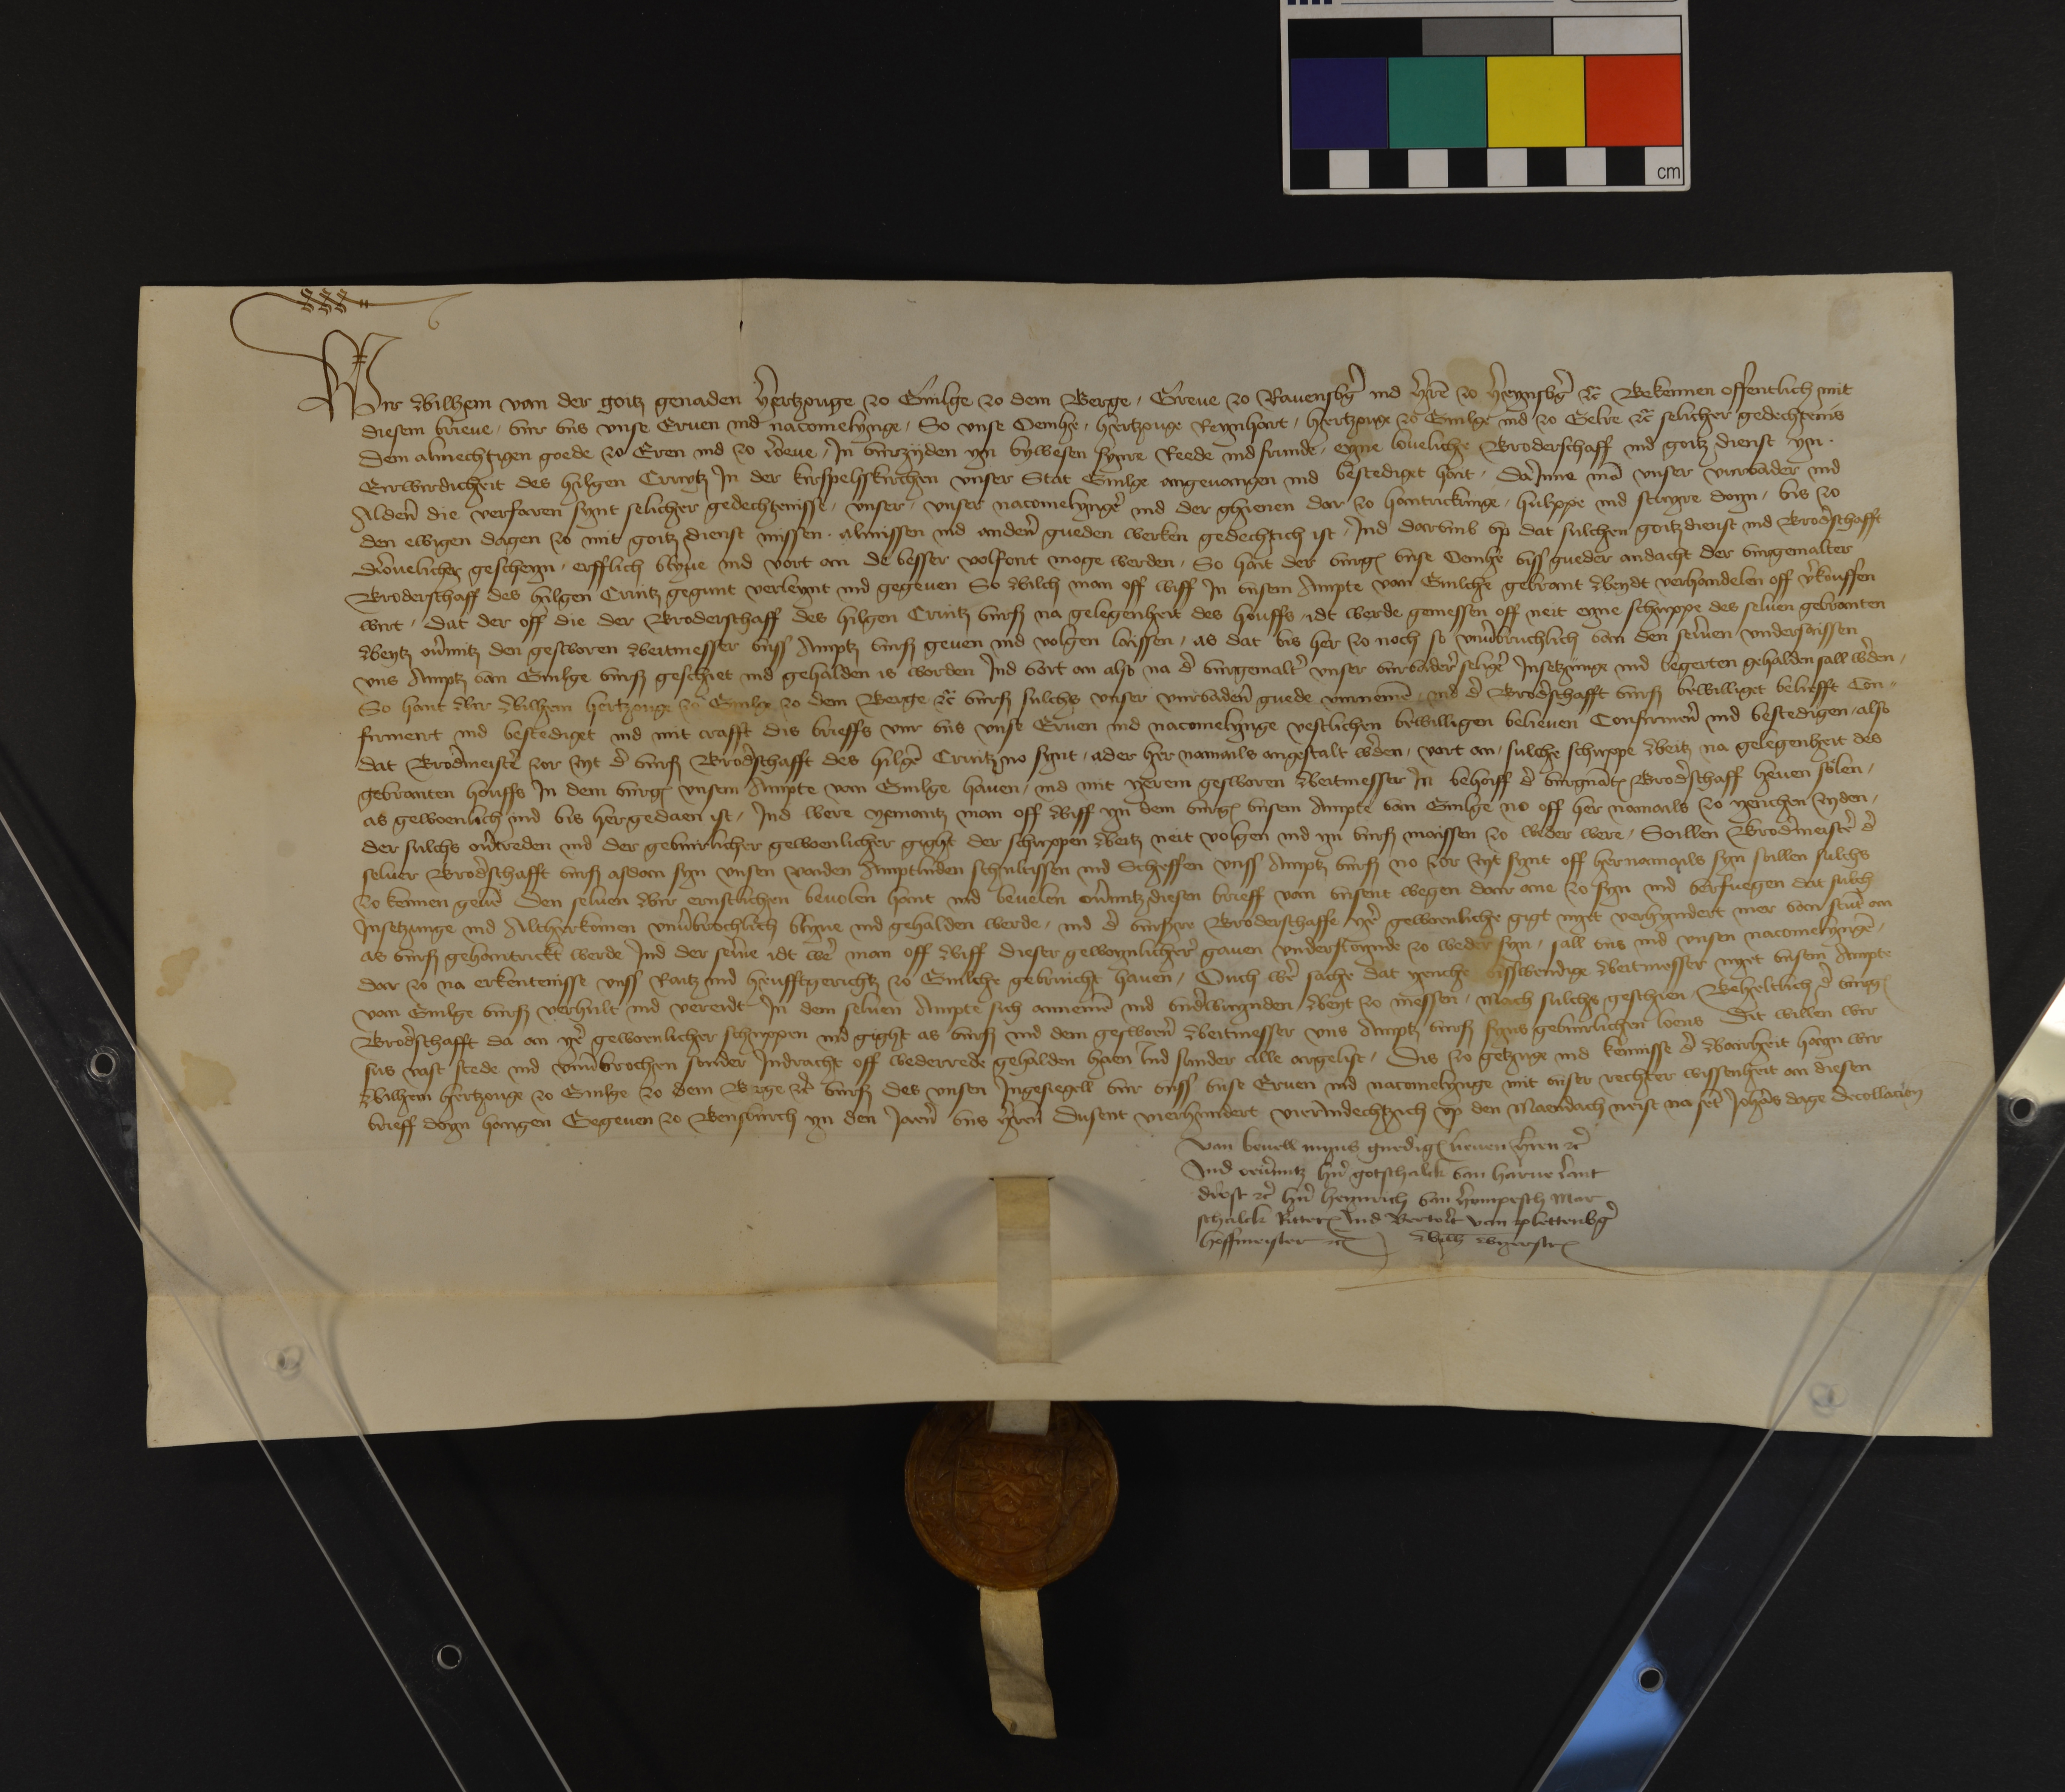 Wir Wilhem van der goitz genaden hertzouge zo Guilge zo dem Berge, Greve zo Ravensbg ind here zo heynsbg etc Bekennen offentlich mit
diesem brieve, vur uns unse Erven ind nacomelynge, So unse Oemhe, hertzouge Reynhart, hertzouge zo Guilge ind zo Gelre etc selicher gedechtenis
dem almechtigen goede zo Eren ind zo loeve, In vurzyden yn bywesen synre Reede ind frunde, eyne loveliche Broderschaff ind goitz dienst yn
Eirwirdicheit des hilgen Cruytz In der kirspelskirchen unser Stat Guilge angevangen ind bestediget hait, darinne man unser vurvader ind
Alderen die verfaren synt selicher gedechtenisse, unser, unser nacomelynger ind der ghienen dar zo hantrickinge, hulppe ind stuyre doyn, bis zo
den ewigen dagen zo mit goitz dienst missen almissen ind anderen gueden werken gedechtich ist, Ind darumb up dat sulchen goitz dienst ind Broderschafft
gescheyn, erfflich blyve ind vort an de besser volfort moge werden, So hait der vurg unse Oemhe uss gueder andacht der vurgemalter
Broderschaff des hilgen Cruitz gegunt verleynt ind gegeven So wilch man off wiff In unsem Ampte van Guilche gebrant Weydt verhandelen off verkouffen
wirt, dat der off die der Broderschaff des hilgen Cruitz vurss na gelegenheit des houffs, idt werde gemessen off neit eyne schuppe des selven gebranten
Weytz overmitz den geswoeren Weitmesser unss Amptz vurss geven ind volgen laissen, as dat bis her zo noch so unverbruchlich van den selven undersaissen
uns Amptz van Guilge vurss geschiet ind gehalden is worden Ind vort an also na der vurgemalter unser vurvader seliger Insetzunge ind begerten gehalden sall werden,
So hant Wir Wilhem hertzouge zo Guilge zo dem Berge etc vurss sulchs unser vurvaderen guede vurnemen, ind der Broderschafft vurss bewilliget beliefft Con-
firmeirt ind bestediget ind mit crafft dis brieffs vur uns unse Erven ind nacomelynge vestlichen bewilligen believen Confirmeren ind bestedigen, also
dat Brodermeister zor zyt der vurss Broderschafft des hilgen Cruitz no synt, ader her namails angestalt werden, vort an, sulche schuppe Weitz na gelegenheit des
gebranten houffs In dem vurg unsem Ampte van Guilge haven, ind mit yerem geswoeren Weitmesser In behoiff der vurgnant Broderschaff heven solen,
as gewoenlich ind bis her gedaen ist, Ind were yemantz man off Wiff yn dem vurg unsem Ampte van Guilge no off her namails zo yenichen zyden,
der sulchs overtreden ind der geburlicher gewoenlicher gight der schuppen Weitz neit volgen ind yn vurss maissen zo weder were, Soillen Brodermeister der
selver Broderschafft vurss asdan syn unsen zorden Amptluden schultissen ind Scheffen unss Amptz vurss no zor zyt synt off hernamails syn soillen sulchs
zo kennen geven Den selven Wir ernstlichen bevolen hant ind bevelen overmitz diesen brieff van unsent wegen dair ane zo syn ind verfuegen dat sulch
Insetzunge ind Altherkomen unverbrochlich blyve ind gehalden werde, ind der vurssr Broderschaffe yre gewoenliche gigt nyet verhyndert mer van stunt an
as vurss gehantrickt werde Ind der selve idt were man off Wiff dieser gewoynlicher gaven understoynde zo weder syn, sall uns ind unsen nacomelyngen,
dar zo na erkentenisse unss Raitz ind heufftgerichtz zo Guilche gebruicht haven, Ouch were sache dat yeniche uisswendige Weitmesser nyet unsem Ampte
van Guilge vurss verhult ind vereydt In dem selven Ampte sich annemen ind underwynden, Weyt zo messen, Mach sulchs geschien, Beheltlich der vurg
Broderschafft da an yre gewoenlicher schuppen ind gight as vurss ind dem geswoeren Weitmesser uns Amptz vurss syns geburlichen loens Dit willen wir
sus vast stede ind unverbrochen sonder Indracht off wederrede gehalden haen Ind sunder alle argelist, Dis zo getzuge ind kennisse der Wairheit hayn wir
Wilhem hertzouge zo Guilge zo dem Berge etc vurss des unsen Ingesiegell vur unss unse Erven ind nacomelynge mit unser rechter wissenheit an diesen
brieff doyn hangen Gegeven zo Bensburch yn den Jaeren uns heren Dusent vierhundert vierindechtzich up den Maendach neist na sent Johans dage decollacion
Van bevell myns gnedig lieven heren etc
Ind overmitz hern gotschalck van harve lant
drost etc hern heynrich van hompesch Mar
schalck Ritter Ind Bertolt van plettenbg
hoffmeister etc Wilh